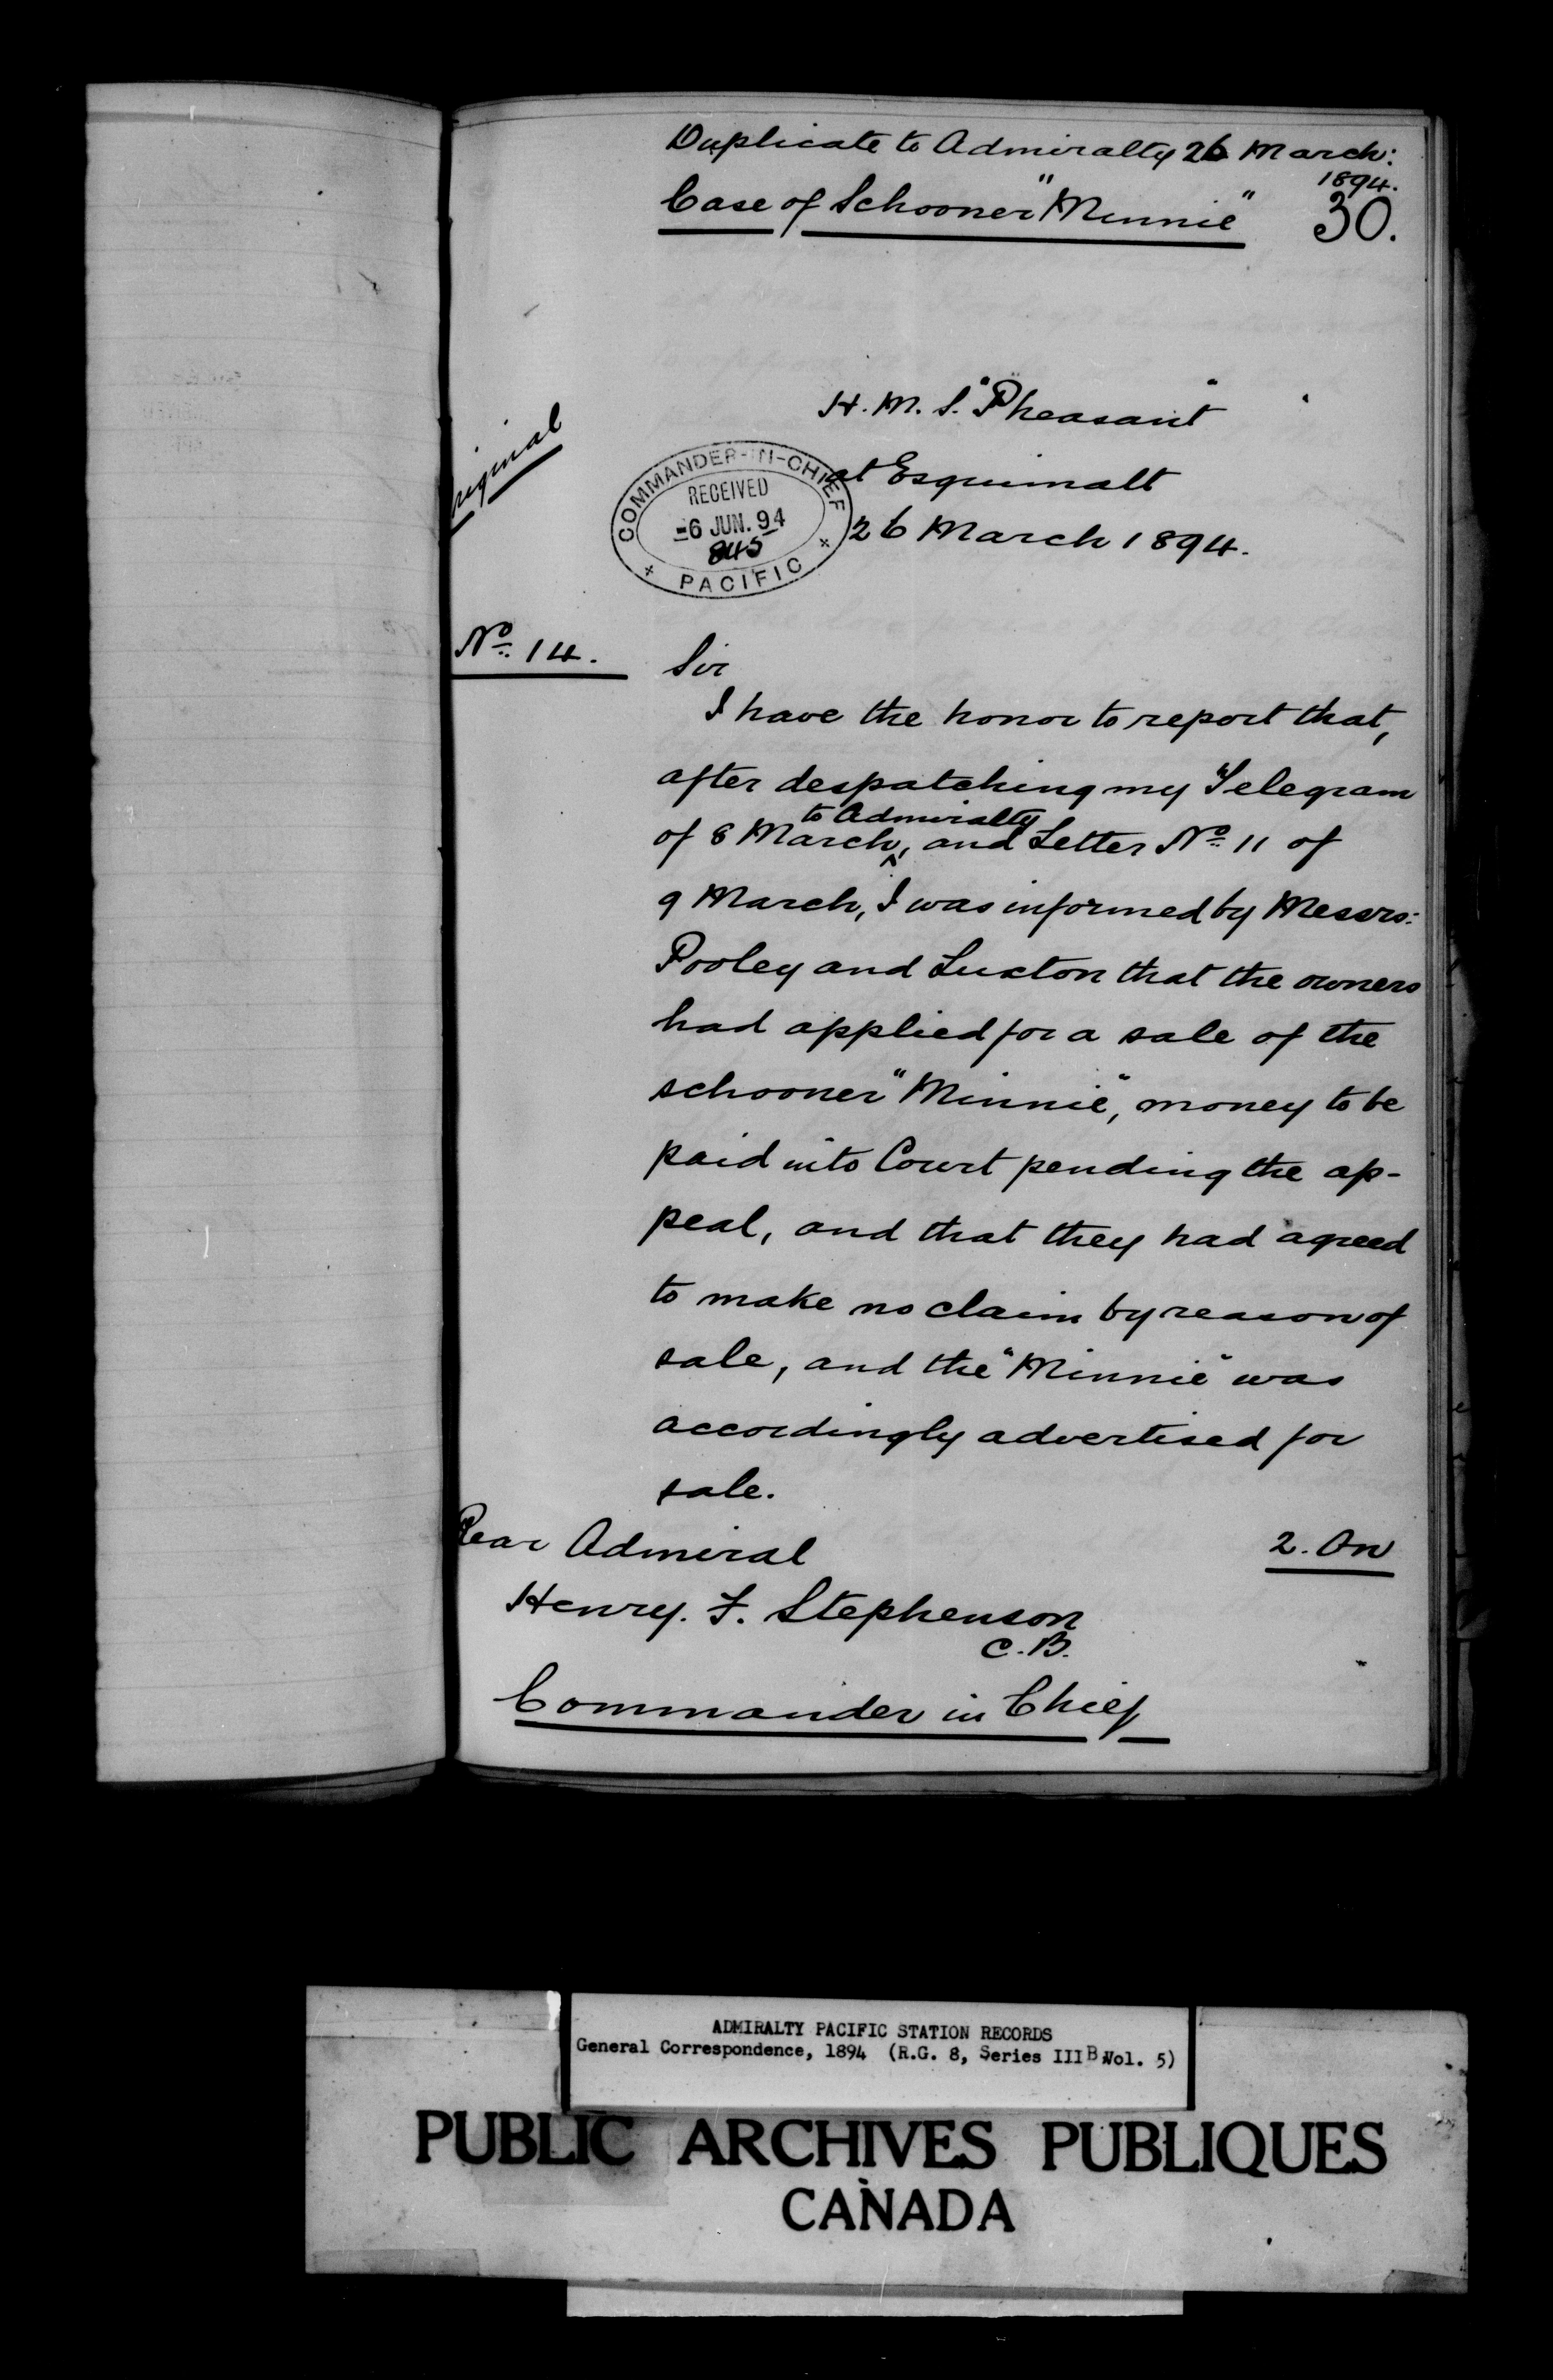 Duplicate to Admiralty 26 March:
1894.
Case of Schooner "Minnie"
30.
H. M. S. "Pheasant"
at Esquimalt
26 March 1894.
riginal
COMMANDER-IN-CHIEF
RECEIVED
-6 JUN. 94
845
+ PACIFIC +
No. 14.
Sir
I have the honor to report that,
after despatching my Telegram
to Admiralty
of 8 March, and Letter No. 11 of
9 March, I was informed by Messrs:
Pooley and Luxton that the owners
had applied for a sale of the
schooner "Minnie", money to be
paid into Court pending the ap-
peal, and that they had agreed
to make no claim by reason of
sale, and the "Minnie" was
accordingly advertised for
sale.
Rear Admiral
2. On
Henry. F. Stephenson
C.B.
Commander in Chief
ADMIRALTY PACIFIC STATION RECORDS
General Correspondence, 1894 (R.G. 8, Series III B, Vol. 5)
PUBLIC ARCHIVES PUBLIQUES
CANADA